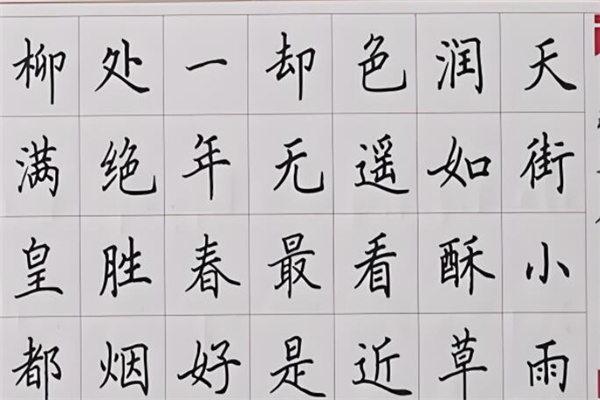 天街小雨
润如酥草
色遥看近
却无最是
一年春好
处绝胜烟
柳满皇都